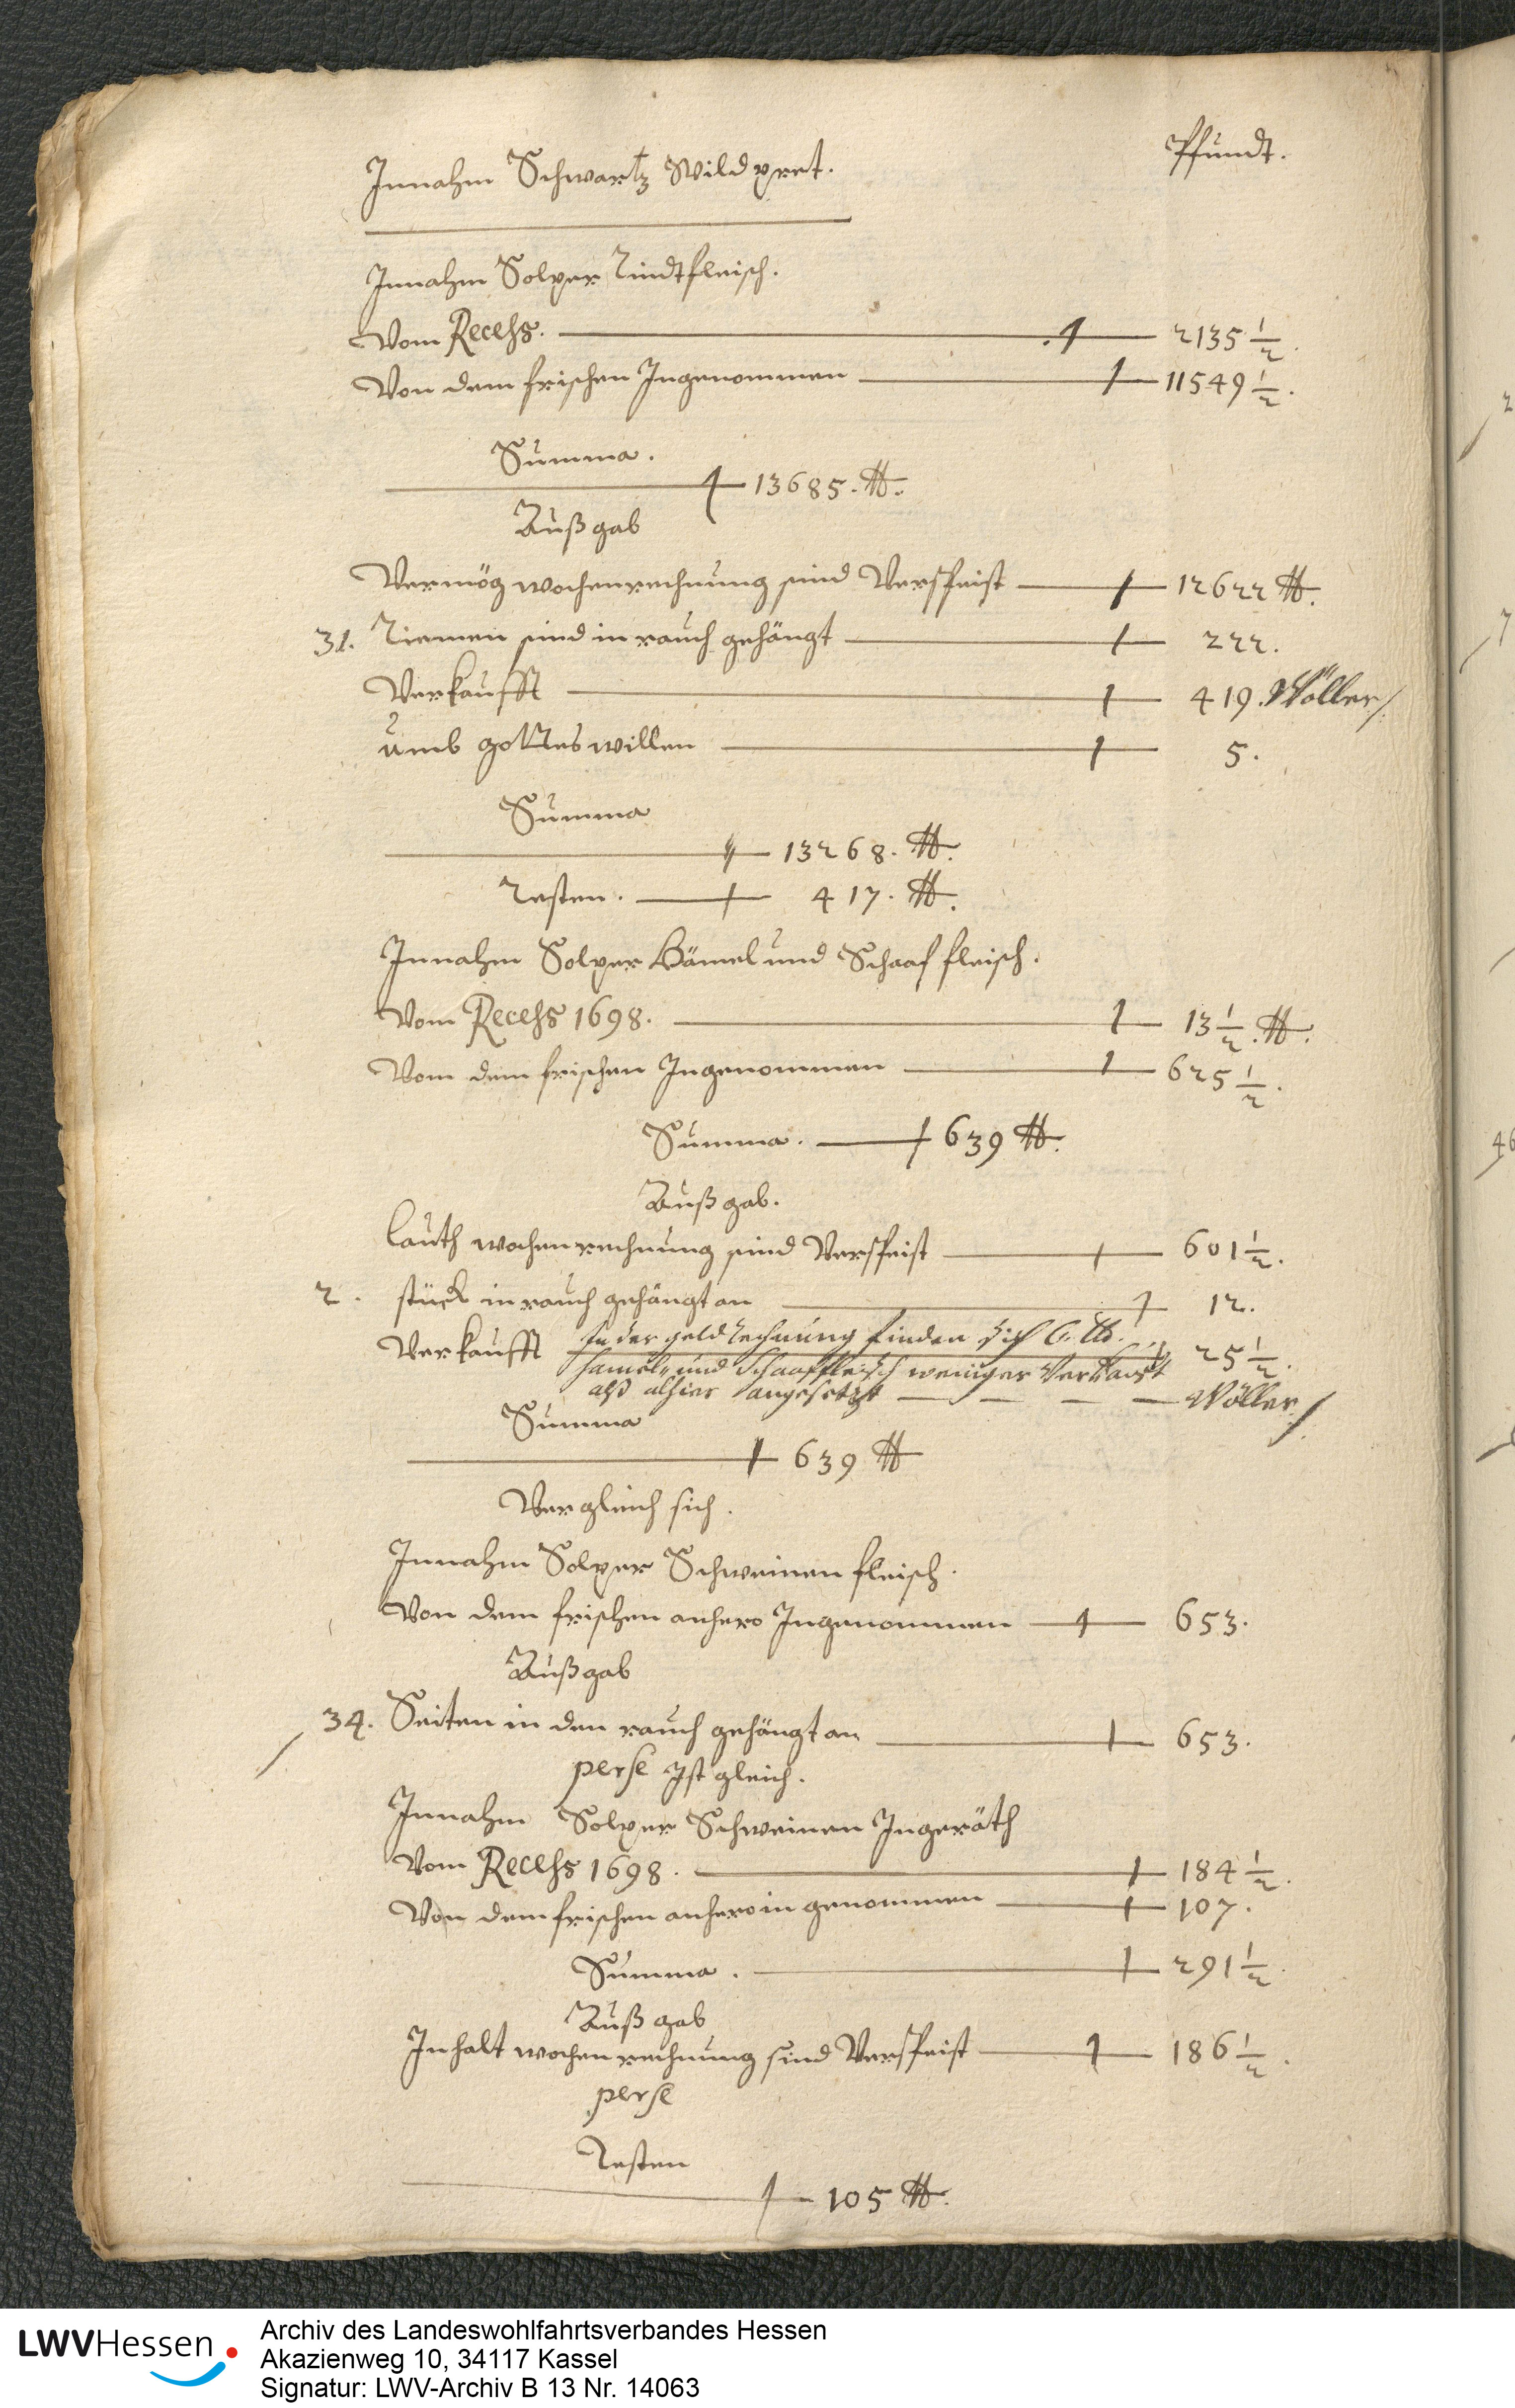 Pfundt.
Innahm Schwartz Wildpret.
Innahm Solper Rindtfleisch.
Vom Recess. 2135 1/2.
Von dem frischen Ingenommen 11549 1/2.
Summa.
13685. ℔.
Außgab
Vermög wochenrechnung sind Verspeist 12622 ℔.
31. Riemen sind in rauch gehängt 222.
Verkaufft 419. Wöller
umb gottes willen 5.
Summa
13268. ℔.
Resten. 417. ℔.
Innahm Solper Hämel und Schaaf fleisch.
Vom Recess 1698. 13 1/2. ℔.
Vom dem frischen Ingenommen 625 1/2.
Summa. 639 ℔.
Außgab.
lauth wochenrechnung sind Verspeist 601 1/2.
2. stück in rauch gehängt an 12.
Verkaufft 25 1/2.
In der geld Rechnung finden sich 6. ℔.
hamel- und Schaaffleisch weniger Verkauft
alß alhier angesetzt Wöller
Summa
639 ℔
Vergleich sich.
Innahm Solper Schweinen fleisch.
Von dem frischen anhero Ingenommen 653.
Außgab
34. Seiten in den rauch gehängt an 653.
perse Ist gleich.
Innahm Solper Schweinen Ingeräth
Vom Recess 1698. 184 1/2.
Von dem frischen anhero in genommen 107.
Summa. 291 1/2.
Außgab
Inhalt wochenrechnung sind Verspeist 186 1/2.
perse
Resten
105 ℔.
LWVHessen
Archiv des Landeswohlfahrtsverbandes Hessen
Akazienweg 10, 34117 Kassel
Signatur: LWV-Archiv B 13 Nr. 14063